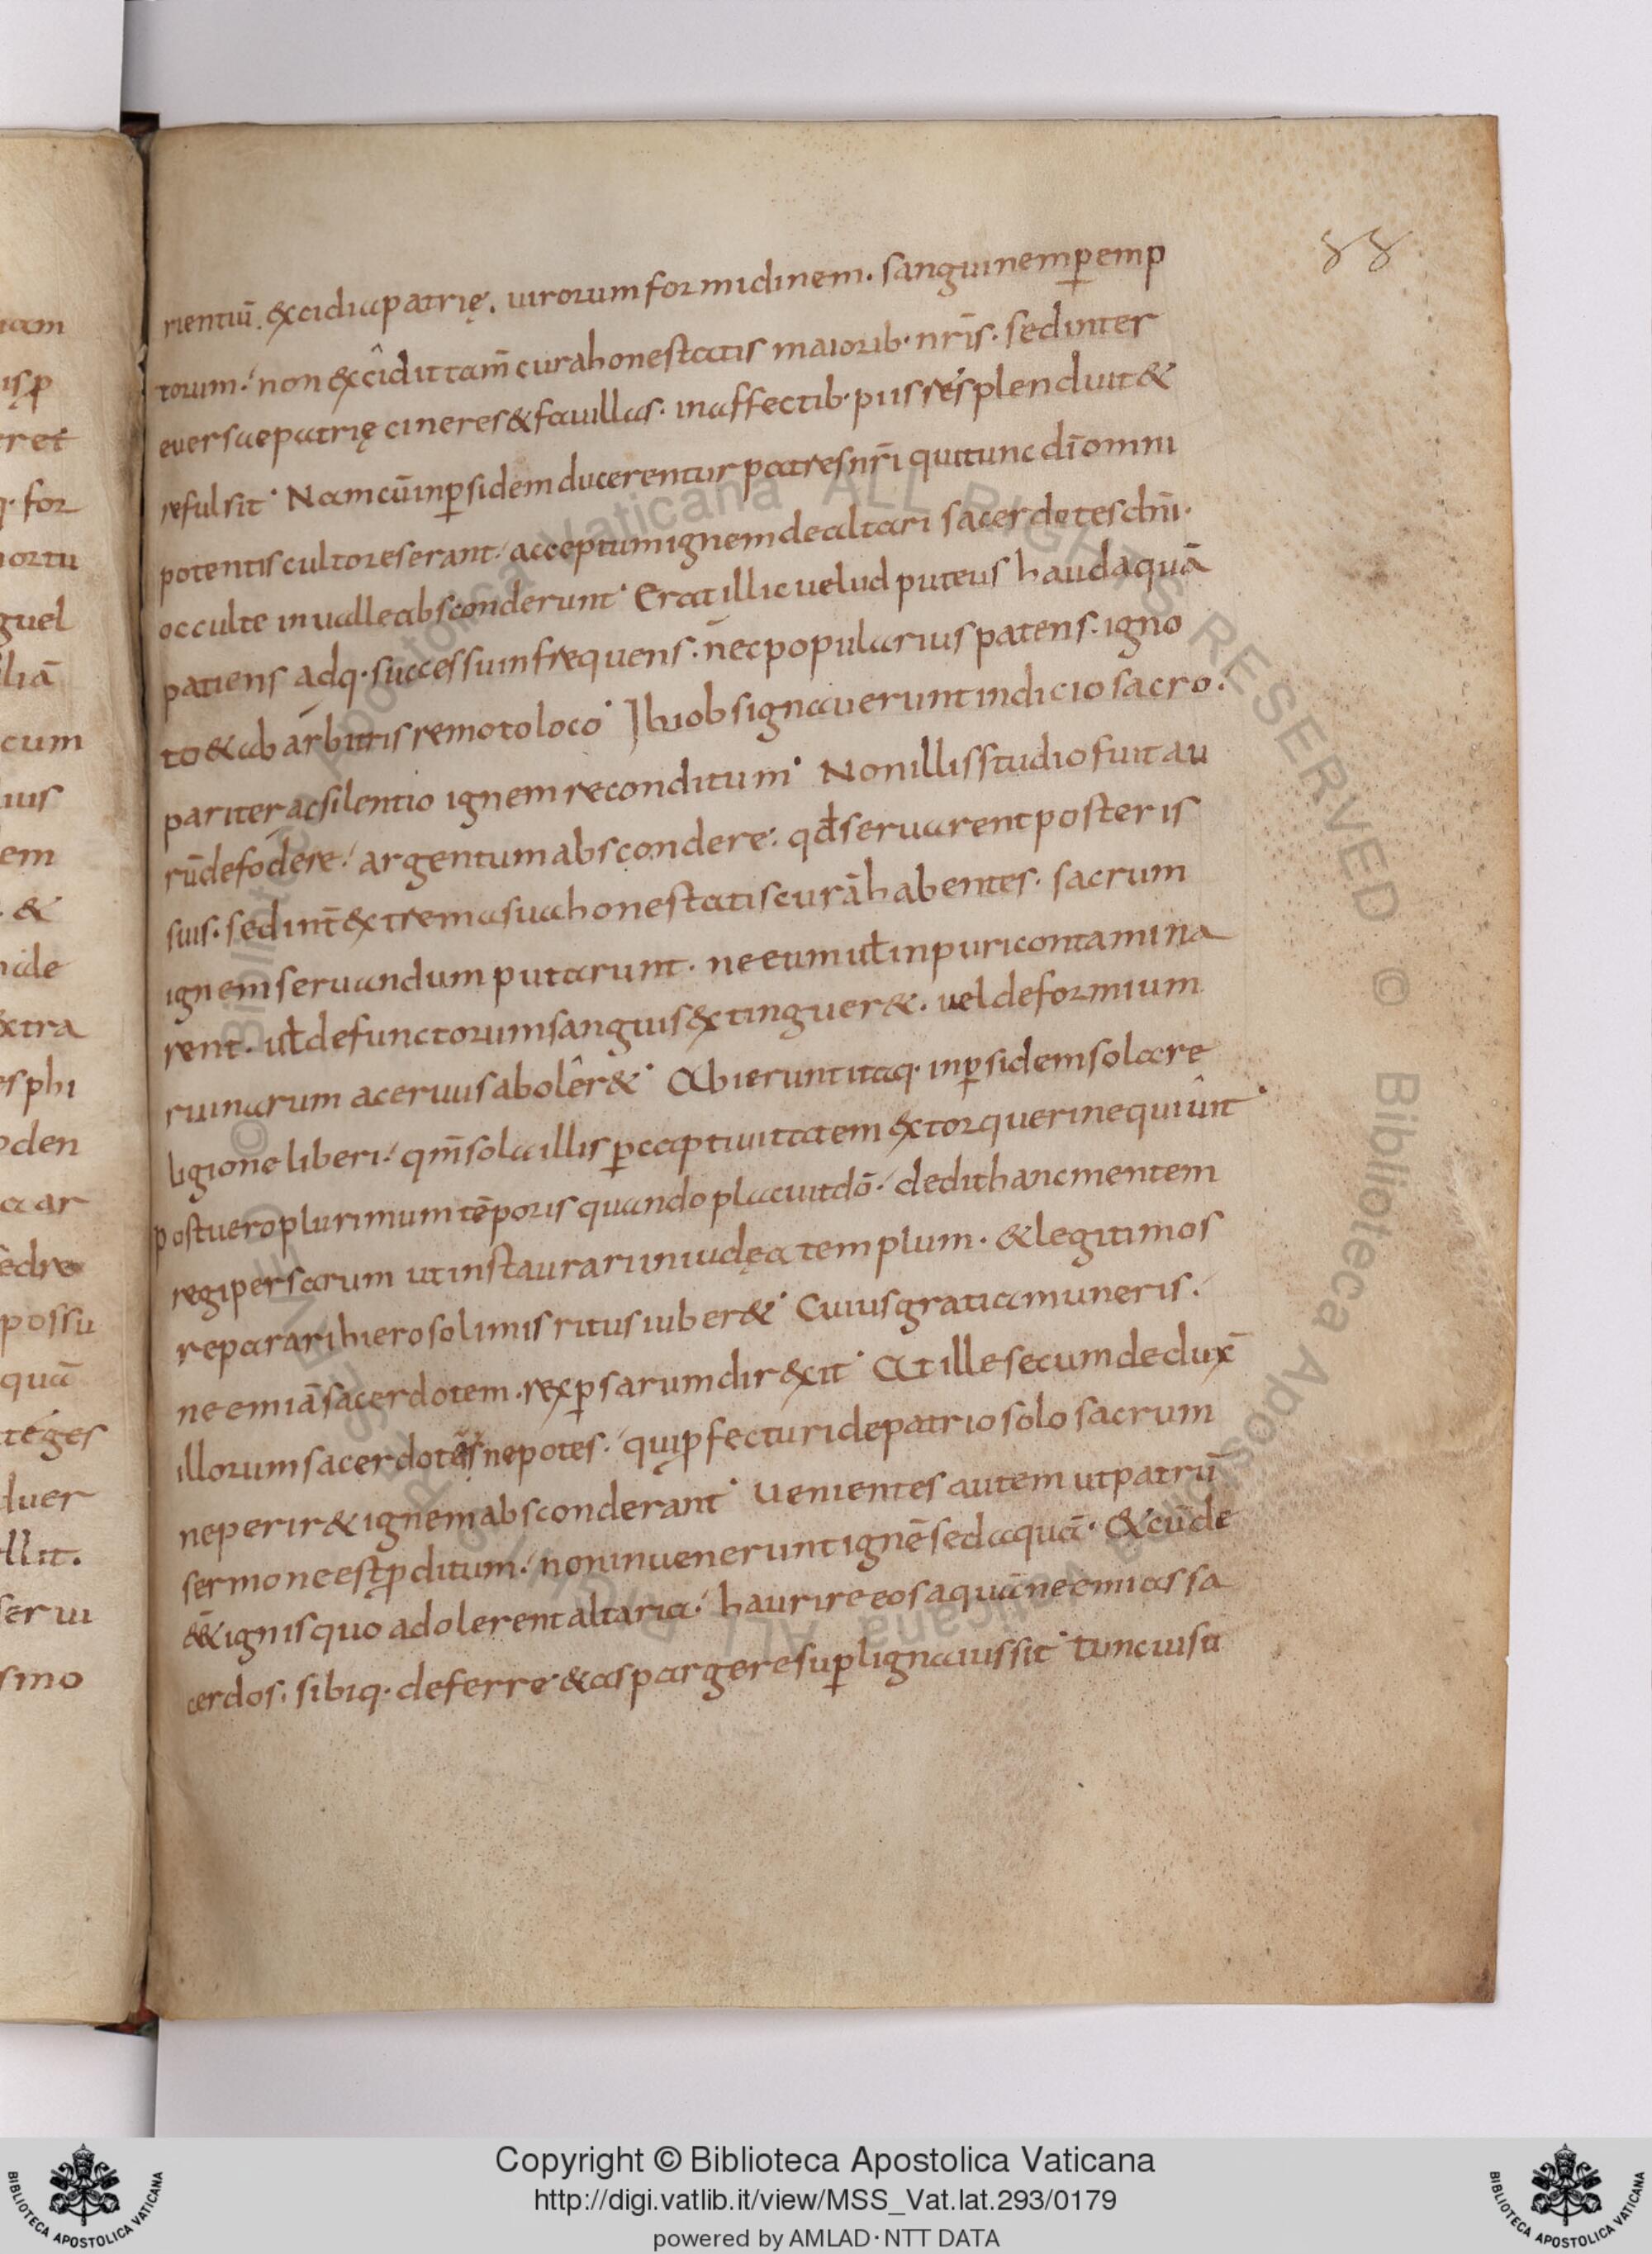 88
rientiū. &xcidia patrię. uirorum formidinem. sanguinem p̄emp
torum. non &xcidit tam̄ cura honestatis maiorib· nr̄is. sed inter
euersae patrię cineres & fauillas. in affectib· piis resplenduit &
refulsit· Nam cū in p̄sidem ducerentur patres nr̄i qui tunc dī omni
potentis cultores erant. acceptum ignem de altari sacerdotes dn̄i.
occulte in ualle absconderunt· Erat illic uelud puteus haud aquā
patiens adq· successu infrequens. nec popularius patens. igno
to & ab arbitris remoto loco· Ibi obsignauerunt indicio sacro.
pariter ac silentio ignem reconditum· Non illis studio fuit au
rū defodere. argentum abscondere. qđ seruarent posteris
suis. sed int̄ &xtrema sua honestatis curā habentes. sacrum
ignem seruandum putarunt. ne eum uł inpuri contamina
rent. uł defunctorum sanguis &xtinguer&. uel deformium
ruinarum aceruus aboler&· Abierunt itaq· in p̄sidem sola re
ligione liberi. qm̄ sola illis p̄ captiuitatem &xtorqueri nequiuit·
post uero plurimum tēporis quando placuit dō. dedit hanc mentem
regi persarum ut instaurari in iudęa templum. & legitimos
reparari hierosolimis ritus iuber&· Cuius gratia muneris.
neemiā sacerdotem. rex p̄sarum dir&xit· At ille secum dedux̄
illorum sacerdotes nepotes. qui p̄fecturi de patrio solo sacrum
ne perir& ignem absconderant· Uenientes autem ut patrū
sermone est p̄ditum. non inuenerunt ignē sed aquā· & cū de
ē& ignis quo adolerent altaria. haurire eos aquā neemias sa
cerdos. sibiq· deferre & aspargere sup̄ ligna iussit· tunc uisu
iam
ret
for
ortu
guel
liā
cum
uis
em
&
ide
&xtra
esphi
oden
a ar
edre
possu
quā
teges
duer
llit.
ser ui
smo
© Biblioteca Apostolica Vaticana ALL RIGHTS RESERVED © Biblioteca Apostolica Vaticana ALL RIGHTS RESERVED
BIBLIOTECA APOSTOLICA VATICANA
Copyright © Biblioteca Apostolica Vaticana
http://digi.vatlib.it/view/MSS_Vat.lat.293/0179
powered by AMLAD·NTT DATA
BIBLIOTECA APOSTOLICA VATICANA